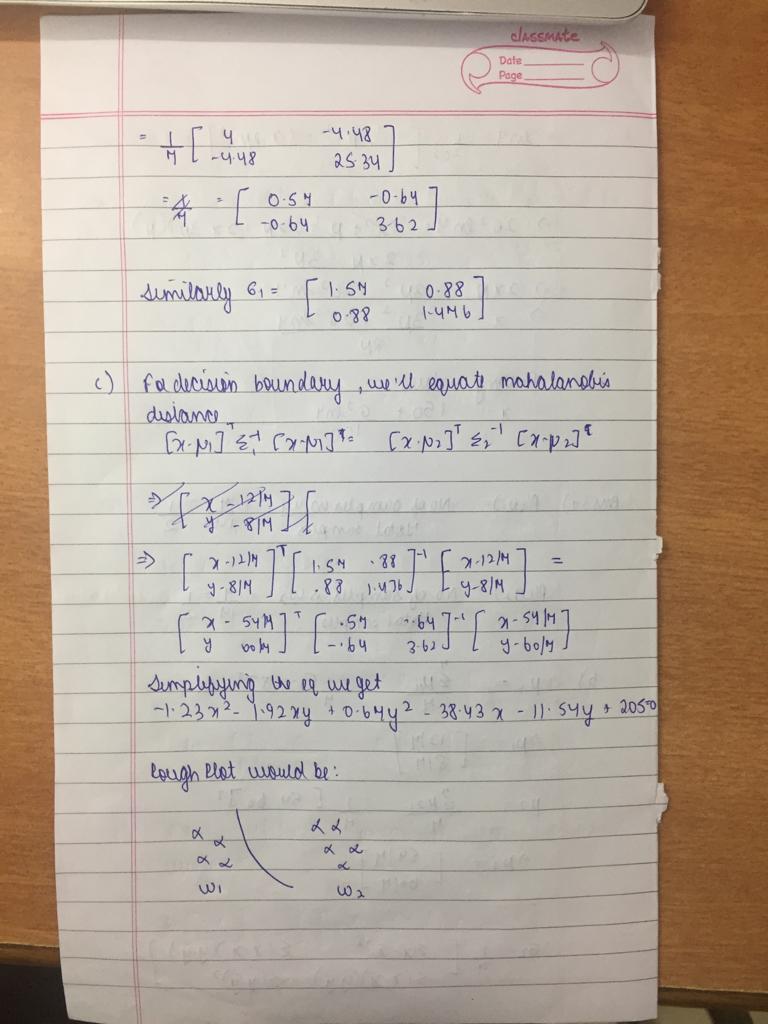 classmate
Date
Page
= 1/7 [ 4 -4.48
-4.48 25.34 ]
= [ 0.57 -0.64
-0.64 3.62 ]
Similarly σ1 = [ 1.57 0.88
0.88 1.476 ]
c) For decision boundary, we'll equate mahalanobis
distance
[x-μ1]ᵀ Σ1⁻¹ [x-μ1] = [x-μ2]ᵀ Σ2⁻¹ [x-μ2]
⇒ [ x - 12/7
y - 8/7 ] [
⇒ [ x-12/7 ]ᵀ [ 1.57 .88 ]⁻¹ [ x-12/7 ] =
[ y-8/7 ] [ .88 1.476 ] [ y-8/7 ]
[ x - 54/7 ]ᵀ [ .57 -.64 ]⁻¹ [ x-54/7 ]
[ y 60/7 ] [ -.64 3.62 ] [ y-60/7 ]
Simplifying the eq we get
-1.23x² - 1.92xy + 0.67y² - 38.43x - 11.54y + 205=0
Rough Plot would be:
α α α
α α α
α α α
ω1 ω2